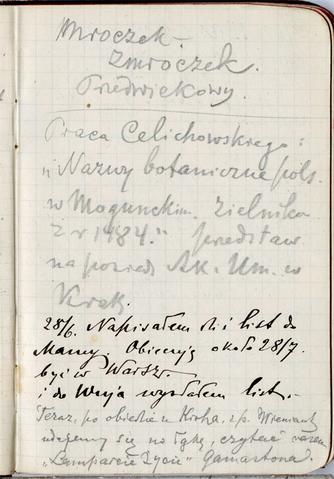 Mroczek -
Zmroczek.
Przedwiekowy.
Praca Celichowskiego:
"Nazwy botaniczne pols.
w Mogunckim Zielniku
z r 1484." przedstaw
na posied Ak. Um. w
Krak.
28/6. Napisałem i list do
Mamy. Obiecuję około 28/7
być w Warsz.
i do Wuja wysłałem list.-
Teraz, po obiedzie u
udajemy się na łąkę, czytać razem
"Lamparcie Życie" Gamastona.